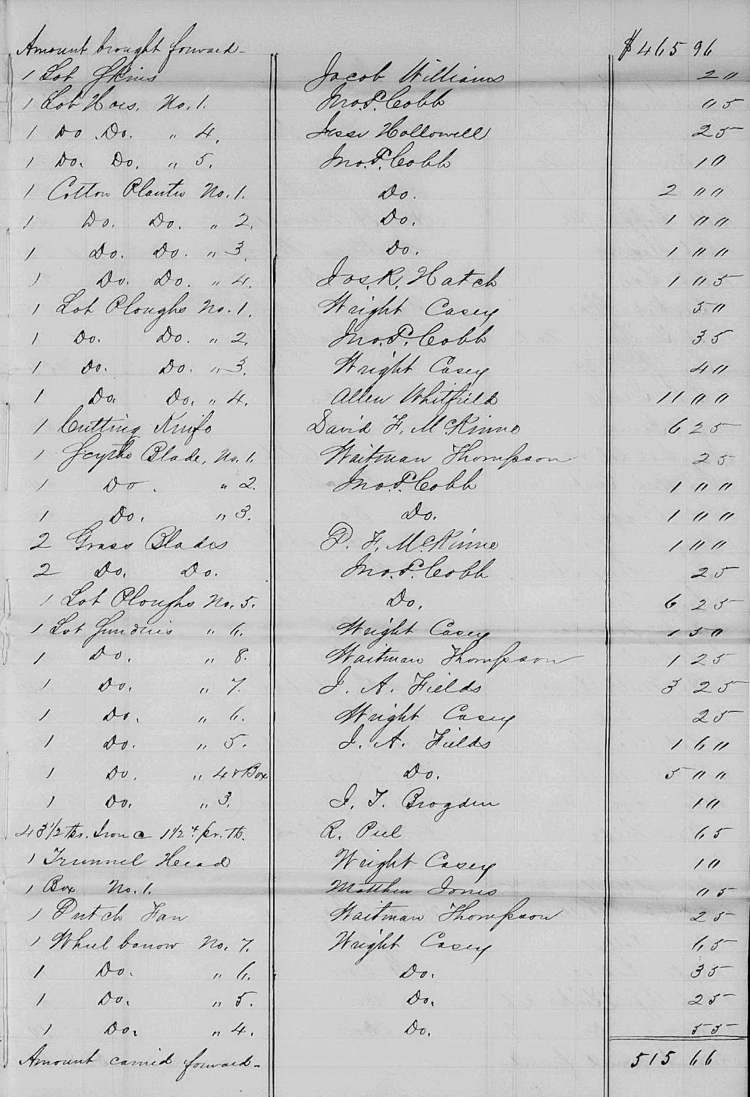 Amount brought forward- $465 96
1 Lot Skins Jacob Williams 20
1 Lot Hoes, No. 1. Jno. P. Cobb 05
1 Do. Do. " 4. Jesse Hollowell 25
1 Do. Do. " 5. Jno. P. Cobb 10
1 Cotton Planter No. 1. Do. 2 00
1 Do. Do. " 2. Do. 1 00
1 Do. Do. " 3. Do. 1 00
1 Do. Do. " 4. Jos. R. Hatch 1 05
1 Lot Ploughs No. 1. Wright Casey 50
1 Do. Do. " 2. Jno. P. Cobb 35
1 Do. Do. " 3. Wright Casey 40
1 Do. Do. " 4. Allen Whitfield 11 00
1 Cutting Knife David F. McKinne 6 25
1 Scythe Blade, No. 1. Waitman Thompson 25
1 Do. " 2. Jno. P. Cobb 1 00
1 Do. " 3. Do. 1 00
2 Grass Blades D. F. McKinne 1 00
2 Do. Do. Jno. P. Cobb 25
1 Lot Ploughs No. 5. Do. 6 25
1 Lot Sundries " 6. Wright Casey 1 50
1 Do. " 8. Waitman Thompson 1 25
1 Do. " 7. J. A. Fields 3 25
1 Do. " 6. Wright Casey 25
1 Do. " 5. J. A. Fields 1 60
1 Do. " 4 & Box Do. 5 00
1 Do. " 3. J. T. Brogden 10
43 1/2 lbs. Iron @ 1 1/2 ¢ pr. lb. R. Peel 65
1 Trunnel Head Wright Casey 10
1 Box No. 1. Matthew Jones 05
1 Dutch Fan Waitman Thompson 25
1 Wheel barrow No. 7. Wright Casey 65
1 Do. " 6. Do. 35
1 Do. " 5. Do. 25
1 Do. " 4. Do. 55
Amount carried forward- 515 66